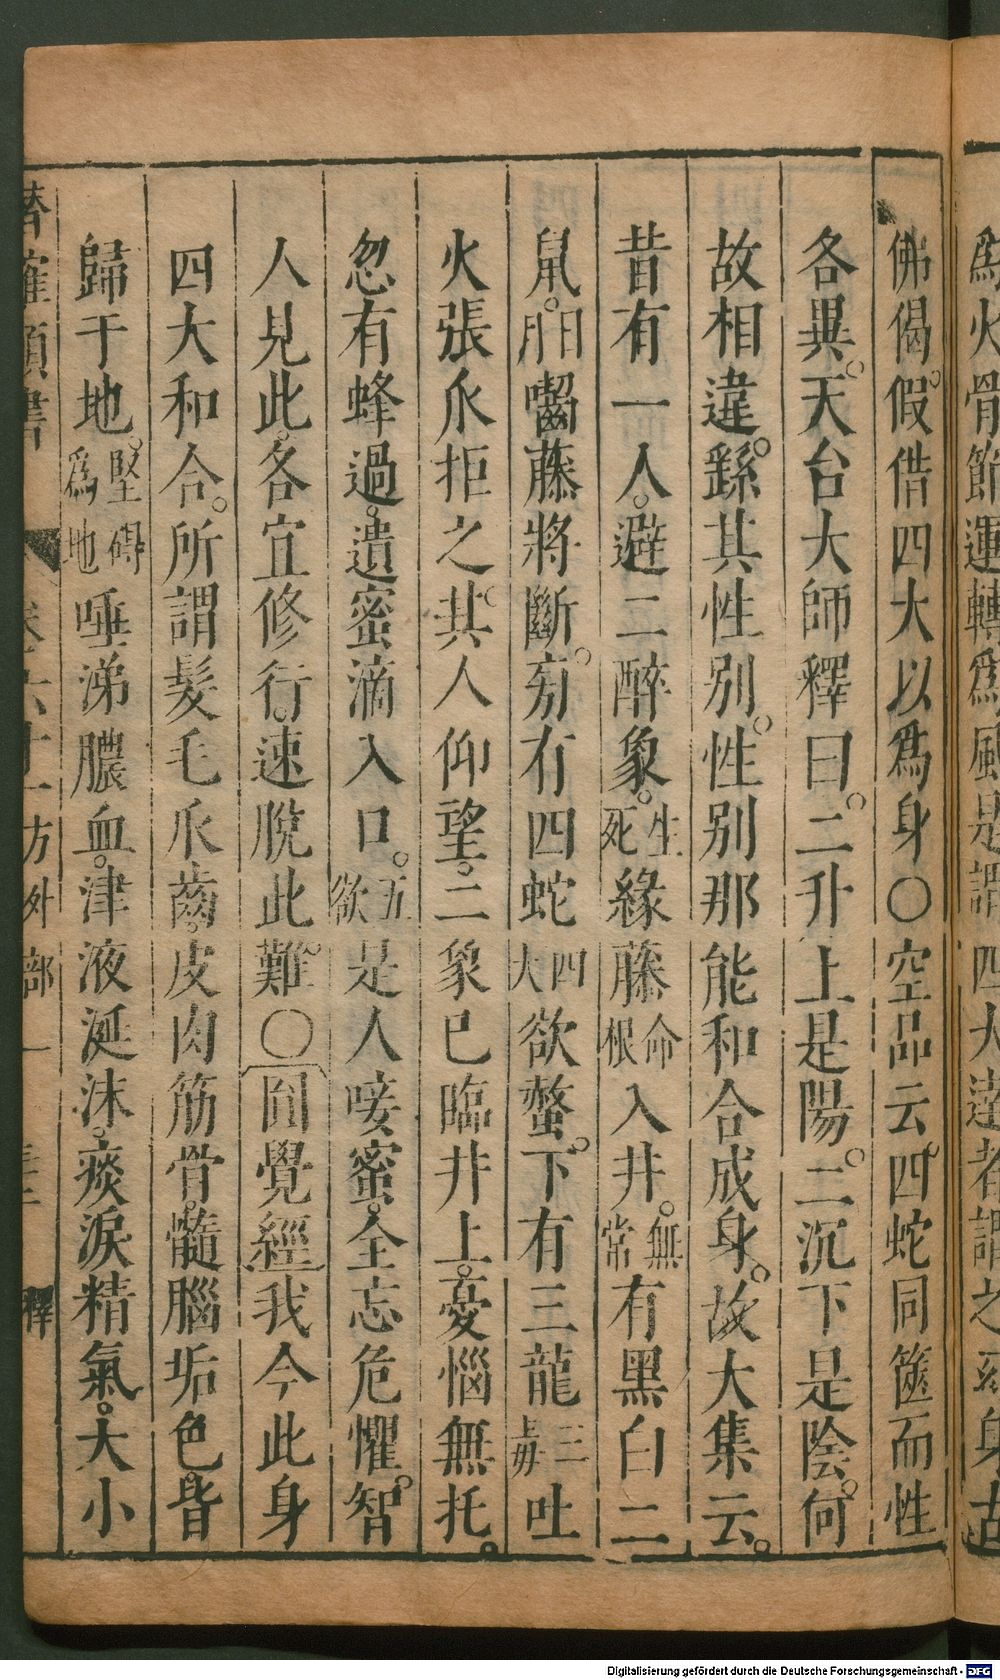 爲火骨節運轉爲風是謂四大達者謂之
佛偈。假借四大以爲身〇空品云。四蛇同篋而性
各異。天台大師釋曰。二升上是陽。二沉下是陰。何
故相違。繇其性別。性別那能和合成身。故大集云。
昔有一人。避二醉象。生死緣藤命根入井。無常有黑白二
鼠。日月嚙藤將斷。旁有四蛇四大欲螫。下有三龍三毒吐
火張爪拒之。其人仰望。二象已臨井上。憂惱無托。
忽有蜂過。遺蜜滴入口。五欲是人唼蜜。全忘危懼。智
人見此。各宜修行。速脫此難。〇圓覺經我今此身
四大和合。所謂髮毛爪齒。皮肉筋骨。髓腦垢色。皆
歸于地。堅礙爲地唾涕膿血。津液涎沫。痰淚精氣。大小
潛確類書 卷六十一方外部一 三十二 釋
Digitalisierung gefördert durch die Deutsche Forschungsgemeinschaft - DFG